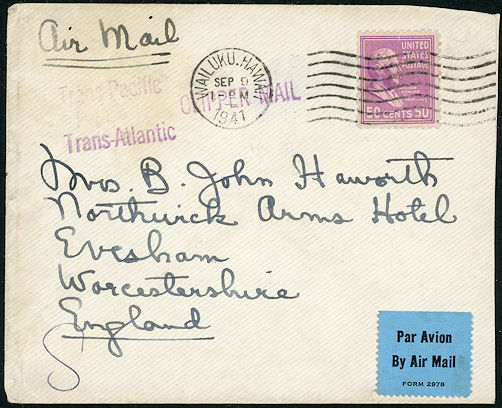 Air Mail
Trans-Pacific
CLIPPER MAIL
Trans-Atlantic
WAILUKU, HAWAII
SEP 9
PM
1941
UNITED
STATES
POSTAGE
50 CENTS 50
Mrs. B. John Haworth
Northwick Arms Hotel
Evesham
Worcestershire
England
Par Avion
By Air Mail
FORM 2978